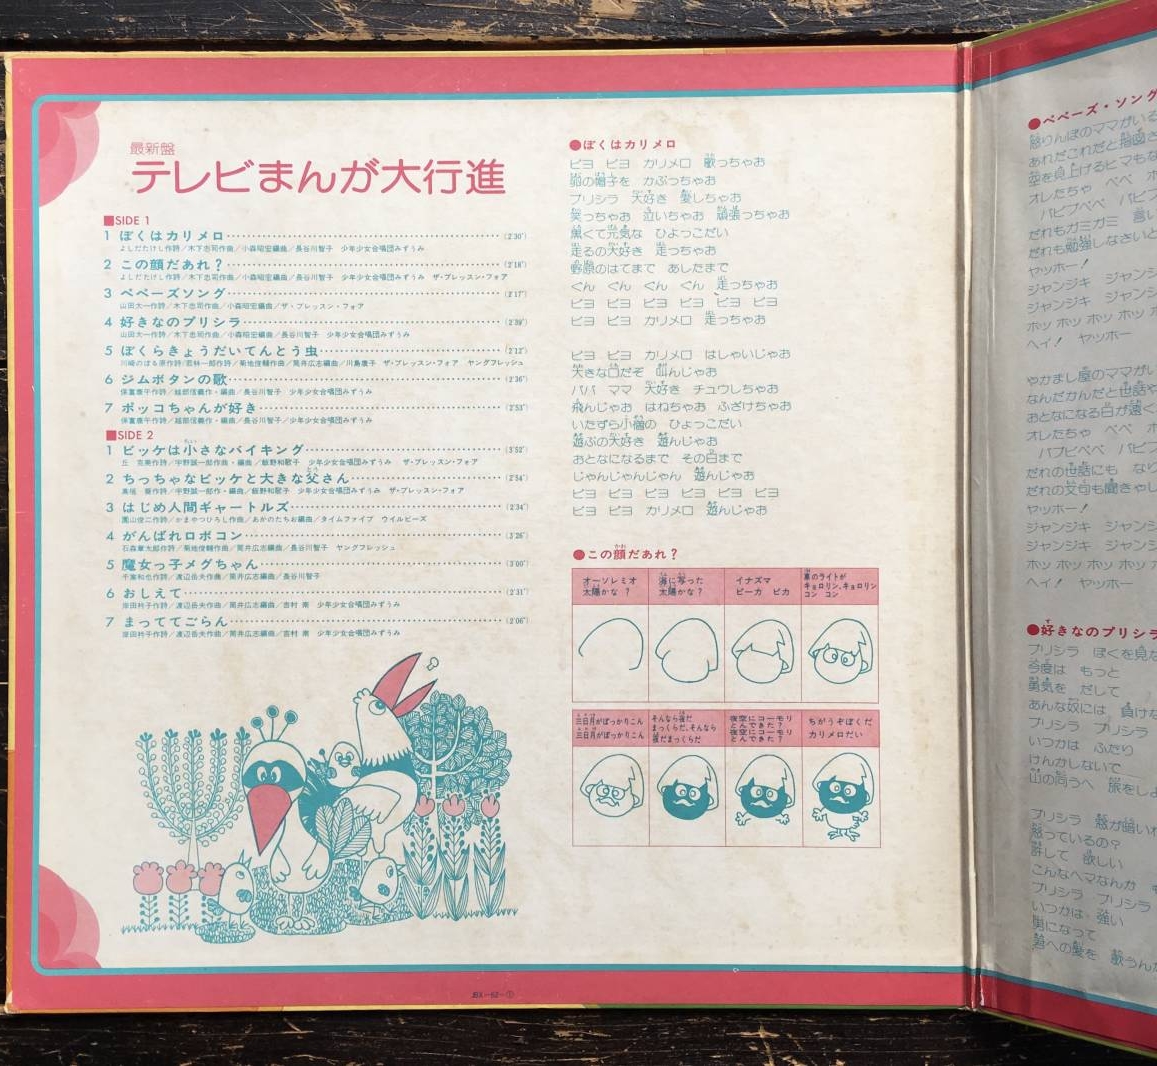 最新盤
テレビまんが大行進
■SIDE 1
1 ぼくはカリメロ (2'30")
よしだたけし作詩／木下忠司作曲／小森昭宏編曲／長谷川智子 少年少女合唱団みずうみ
2 この顔だあれ？ (2'18")
よしだたけし作詩／木下忠司作曲／小森昭宏編曲／長谷川智子 少年少女合唱団みずうみ ザ・ブレッスン・フォア
3 ペペーズソング (2'17")
山田太一作詩／木下忠司作曲／小森昭宏編曲／ザ・ブレッスン・フォア
4 好きなのプリシラ (2'39")
山田太一作詩／木下忠司作曲／小森昭宏編曲／長谷川智子 少年少女合唱団みずうみ
5 ぼくらきょうだいてんとう虫 (2'12")
川崎のぼる原作詩／若林一郎作詩／菊地俊輔作曲／筒井広志編曲／川島康子 ザ・ブレッスン・フォア ヤングフレッシュ
6 ジムボタンの歌 (2'36")
保富康午作詩／越部信義作・編曲／長谷川智子 少年少女合唱団みずうみ
7 ポッコちゃんが好き (2'53")
保富康午作詩／越部信義作・編曲／長谷川智子／少年少女合唱団みずうみ
■SIDE 2
1 ビッケは小さなバイキング (3'52")
丘 灯至夫作詩／宇野誠一郎作曲・編曲／飯野和歌子 少年少女合唱団みずうみ ザ・ブレッスン・フォア
2 ちっちゃなビッケと大きな父さん (2'54")
宇野誠一郎作・編曲／飯野和歌子 少年少女合唱団みずうみ ザ・ブレッスン・フォア
3 はじめ人間ギャートルズ (2'34")
園山俊二作詩／かまやつひろし作曲／あかのたちお編曲／タイムファイブ ウイルビーズ
4 がんばれロボコン (3'26")
石森章太郎作詩／菊地俊輔作曲／筒井広志編曲／長谷川智子 ヤングフレッシュ
5 魔女っ子メグちゃん (3'00")
千家和也作詩／渡辺岳夫作曲／筒井広志編曲／長谷川智子
6 おしえて (2'31")
岸田衿子作詩／渡辺岳夫作曲／筒井広志編曲／吉村 南 少年少女合唱団みずうみ
7 まっててごらん (2'06")
岸田衿子作詩／渡辺岳夫作曲／筒井広志編曲／吉村 南 少年少女合唱団みずうみ
●ぼくはカリメロ
ピヨ ピヨ カリメロ 歌っちゃお
卵の帽子を かぶっちゃお
プリシラ 大好き 愛しちゃお
笑っちゃお 泣いちゃお 頑張っちゃお
黒くて元気な ひよっこだい
走るの大好き 走っちゃお
野原のはてまで あしたまで
ぐん ぐん ぐん ぐん 走っちゃお
ピヨ ピヨ ピヨ ピヨ ピヨ ピヨ
ピヨ ピヨ カリメロ 走っちゃお
ピヨ ピヨ カリメロ はしゃいじゃお
大きな口だぞ 叫んじゃお
パパ ママ 大好き チュウしちゃお
飛んじゃお はねちゃお ふざけちゃお
いたずら小僧の ひよっこだい
遊ぶの大好き 遊んじゃお
おとなになるまで その日まで
じゃんじゃんじゃん 遊んじゃお
ピヨ ピヨ ピヨ ピヨ ピヨ ピヨ
ピヨ ピヨ カリメロ 遊んじゃお
●この顔だあれ？
オーソレミオ
太陽かな ？
海に写った
太陽かな？
イナズマ
ピーカ ピカ
車のライトが
キョロリン、キョロリン
コン コン
三日月がぽっかりこん
三日月がぽっかりこん
そんなら夜だ
まっくらだ、そんなら
夜だまっくらだ
夜空にコーモリ
とんできた？
夜空にコーモリ
とんできた？
ちがうぞぼくだ
カリメロだい
JBX-52-①
●ペペーズ・ソング
怒りんぼのママがいる
あれだこれだと指図さ
空を見上げるヒマもな
オレたちゃ ペペ ホ
パピプペペ パピプ
だれもガミガミ 言い
だれも勉強しなさいと
ヤッホー！
ジャンジキ ジャンジ
ジャンジキ ジャンジ
ホッ ホッ ホッ ホッ ホ
ヘイ！ ヤッホー
やかまし屋のママがい
なんだかんだと世話や
おとなになる日が遠く
オレたちゃ ペペ ホ
パプピペペ パピプ
だれの世話にも なり
だれの文句も聞きやし
ヤッホー！
ジャンジキ ジャンジ
ジャンジキ ジャンジ
ホッ ホッ ホッ ホッ ホ
ヘイ！ ヤッホー
●好きなのプリシラ
プリシラ ぼくを見な
今度は もっと
勇気を だして
あんな奴には 負けな
プリシラ プリシラ
いつかは ふたり
けんかしないで
山の向うへ 旅をしよ
プリシラ 顔が暗いわ
怒っているの？
許して 欲しい
こんなヘマなんか も
プリシラ プリシラ
いつかは 強い
男になって
君への愛を 歌うんだ